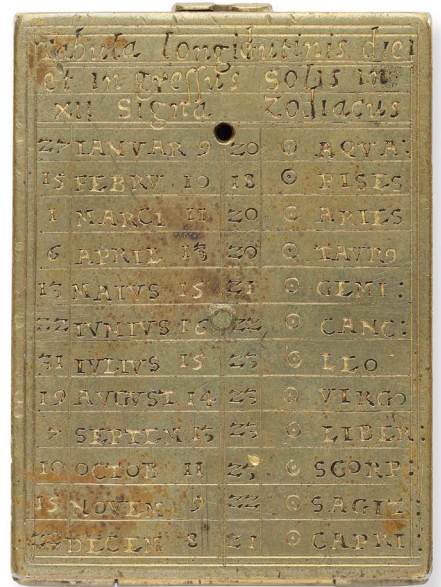 Tabula longidutinis diei
et ingressus Solis in
XII Signa Zodiacus
27 IANVAR 9 20 ☉ AQVA:
15 FEBRV 10 18 ☉ PISES
1 MARCI 11 20 ☉ ARIES
6 APRIL 13 20 ☉ TAVR9
13 MAIVS 15 21 ☉ GEMI:
22 IVNIVS 16 22 ☉ CANC:
31 IVLIVS 15 23 ☉ LEO
19 AVGVST 14 23 ☉ VIRGO
SEPTEM 13 23 ☉ LIBER:
10 OCTOB 11 23 ☉ SCORP:
15 NOVEM 9 22 ☉ SAGIT:
DECEM 8 21 ☉ CAPRI: